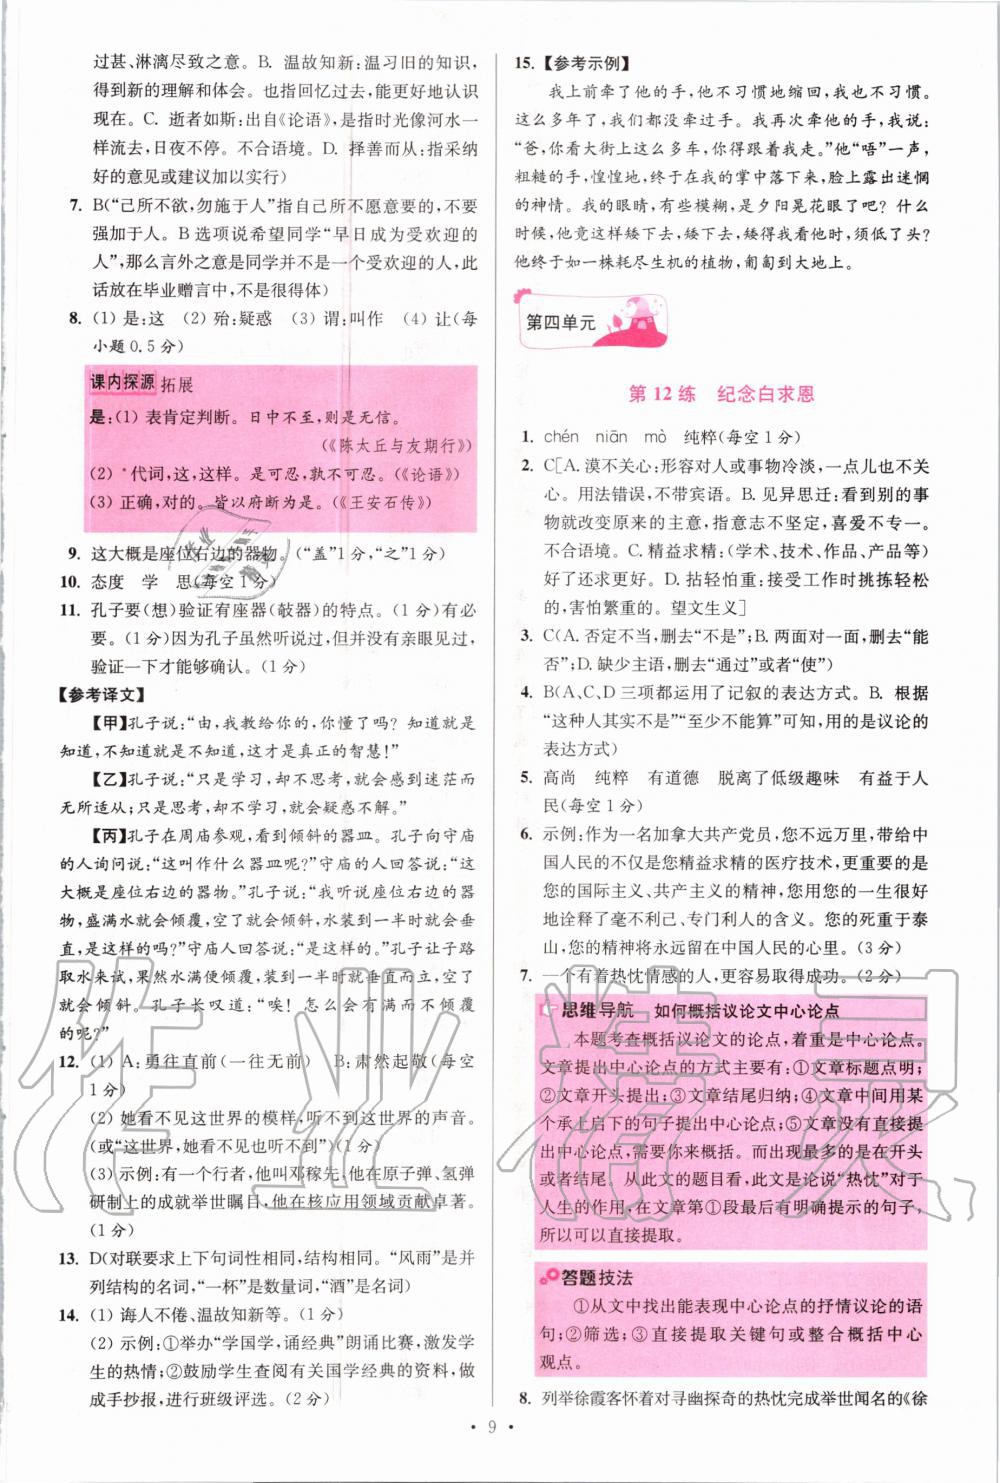 过甚、淋漓尽致之意。B. 温故知新:温习旧的知识,
得到新的理解和体会。也指回忆过去,能更好地认识
现在。C. 逝者如斯:出自《论语》,是指时光像河水一
样流去,日夜不停。不合语境。D. 择善而从:指采纳
好的意见或建议加以实行)
7. B(“己所不欲,勿施于人”指自己所不愿意要的,不要
强加于别人。B选项说希望同学“早日成为受欢迎的
人”,那么言外之意是同学并不是一个受欢迎的人,此
话放在毕业赠言中,是不得体的)
8. (1) 是:这 (2) 殆:疑惑 (3) 谓:叫作 (4) 让(每
小题0.5分)
课内探源 拓展
是:(1) 表肯定判断。日中不至,则是无信。
(《陈太丘与友期行》)
(2) 代词,这,这样。是可忍,孰不可忍。(《论语》)
(3) 正确,对的。皆以府断为是。(《王安石传》)
9. 这大概是座位右边的器物。(“盖”1分,“之”1分)
10. 态度 学 思(每空1分)
11. 孔子要(想)验证有座器(敧器)的特点。(1分)有必
要。(1分)因为孔子虽然听说过,但并没有亲眼见过,
验证一下才能够确认。(1分)
【参考译文】
【甲】孔子说:“由,我教给你的,你懂了吗?知道就是
知道,不知道就是不知道,这才是真正的智慧!”
【乙】孔子说:“只是学习,却不思考,就会感到迷茫而
无所适从;只是思考,却不学习,就会疑惑不解。”
【丙】孔子在周庙参观,看到倾斜的器皿。孔子向守庙
的人询问说:“这叫作什么器皿呢?”守庙的人回答说:“这
大概是座位右边的器物。”孔子说:“我听说座位右边的器
物,盛满水就会倾覆,空了就会倾斜,水装到一半时就会垂
直,是这样的吗?”守庙人回答说:“是这样的。”孔子让子路
取水来试,果然水满便倾覆,装到一半时就会垂直,空了
就会倾斜。孔子长叹道:“唉!怎么会有满而不倾覆的
呢?”
12. (1) A:勇往直前(一往无前) B:肃然起敬(每空
1分)
(2) 她看不见这世界的模样,听不到这世界的声音。
(或“这世界,她看不见也听不到”)(1分)
(3) 示例:有一个行者,他叫邓稼先,他在原子弹、氢弹
研制上的成就举世瞩目,他在核应用领域贡献卓著。
(1分)
13. D(对联要求上下句词性相同,结构相同。“风雨”是并
列结构的名词,“一杯”是数量词,“酒”是名词)
14. (1) 诲人不倦、温故知新等。(1分)
(2) 示例:①举办“学国学,诵经典”朗诵比赛,激发学
生的热情;②鼓励学生查阅有关国学经典的资料,做
成手抄报,进行班级评选。(2分)
15. 【参考示例】
我上前牵了他的手,他不习惯地缩回,我也不习惯。
这么多年,我们都没牵过手。我再次牵他的手,我说:
“爸,你看大街上这么多车,你得跟着我走。”他“唔”一声,
粗糙的手,惶惶地,终于在我的掌中落下来,脸上露出迷惘
的神情。我的眼睛,有些模糊,是夕阳晃花眼了吧?什么
时候,他竟这样矮下去,矮下去,矮得我看他时,须低了头?
他终于如一株耗尽生机的植物,匍匐到大地上。
第四单元
第12练 纪念白求恩
1. chén niān mò 纯粹(每空1分)
2. C[A. 漠不关心:形容对人或事物冷淡,一点儿也不关
心。用法错误,不带宾语。B. 见异思迁:看到别的事
物就改变原来的主意,指意志不坚定,喜爱不专一。
不合语境。C. 精益求精:(学术、技术、作品、产品等)
好了还求更好。D. 拈轻怕重:接受工作时挑拣轻松
的,害怕繁重的。望文生义]
3. C(A. 否定不当,删去“不是”;B. 两面对一面,删去“能
否”;D. 缺少主语,删去“通过”或者“使”)
4. B(A、C、D三项都运用了记叙的表达方式。B. 根据
“这种人其实不是”“至少不能算”可知,用的是议论的
表达方式)
5. 高尚 纯粹 有道德 脱离了低级趣味 有益于人
民(每空1分)
6. 示例:作为一名加拿大共产党员,您不远万里,带给中
国人民的不仅是您精益求精的医疗技术,更重要的是
您的国际主义、共产主义的精神,您用您的一生很好
地诠释了毫不利己、专门利人的含义。您的死重于泰
山,您的精神将永远留在中国人民的心里。(3分)
7. 一个有着热忱情感的人,更容易取得成功。(2分)
思维导航 如何概括议论文中心论点
本题考查概括议论文的论点,着重是中心论点。
文章提出中心论点的方式主要有:①文章标题点明;
②文章开头提出;③文章结尾归纳;④文章中间用某
个承上启下的句子提出中心论点;⑤文章没有直接提
出中心论点,需要你来概括。而出现最多的是在开头
或者结尾。从此文的题目看,此文是论说“热忱”对于
人生的作用,在文章第①段最后有明确提示的句子,
所以可以直接提取。
答题技法
①从文中找出能表现中心论点的抒情议论的语
句;②筛选;③直接提取关键句或整合概括中心
观点。
8. 列举徐霞客怀着对寻幽探奇的热忱完成举世闻名的《徐
• 9 •
作业精灵